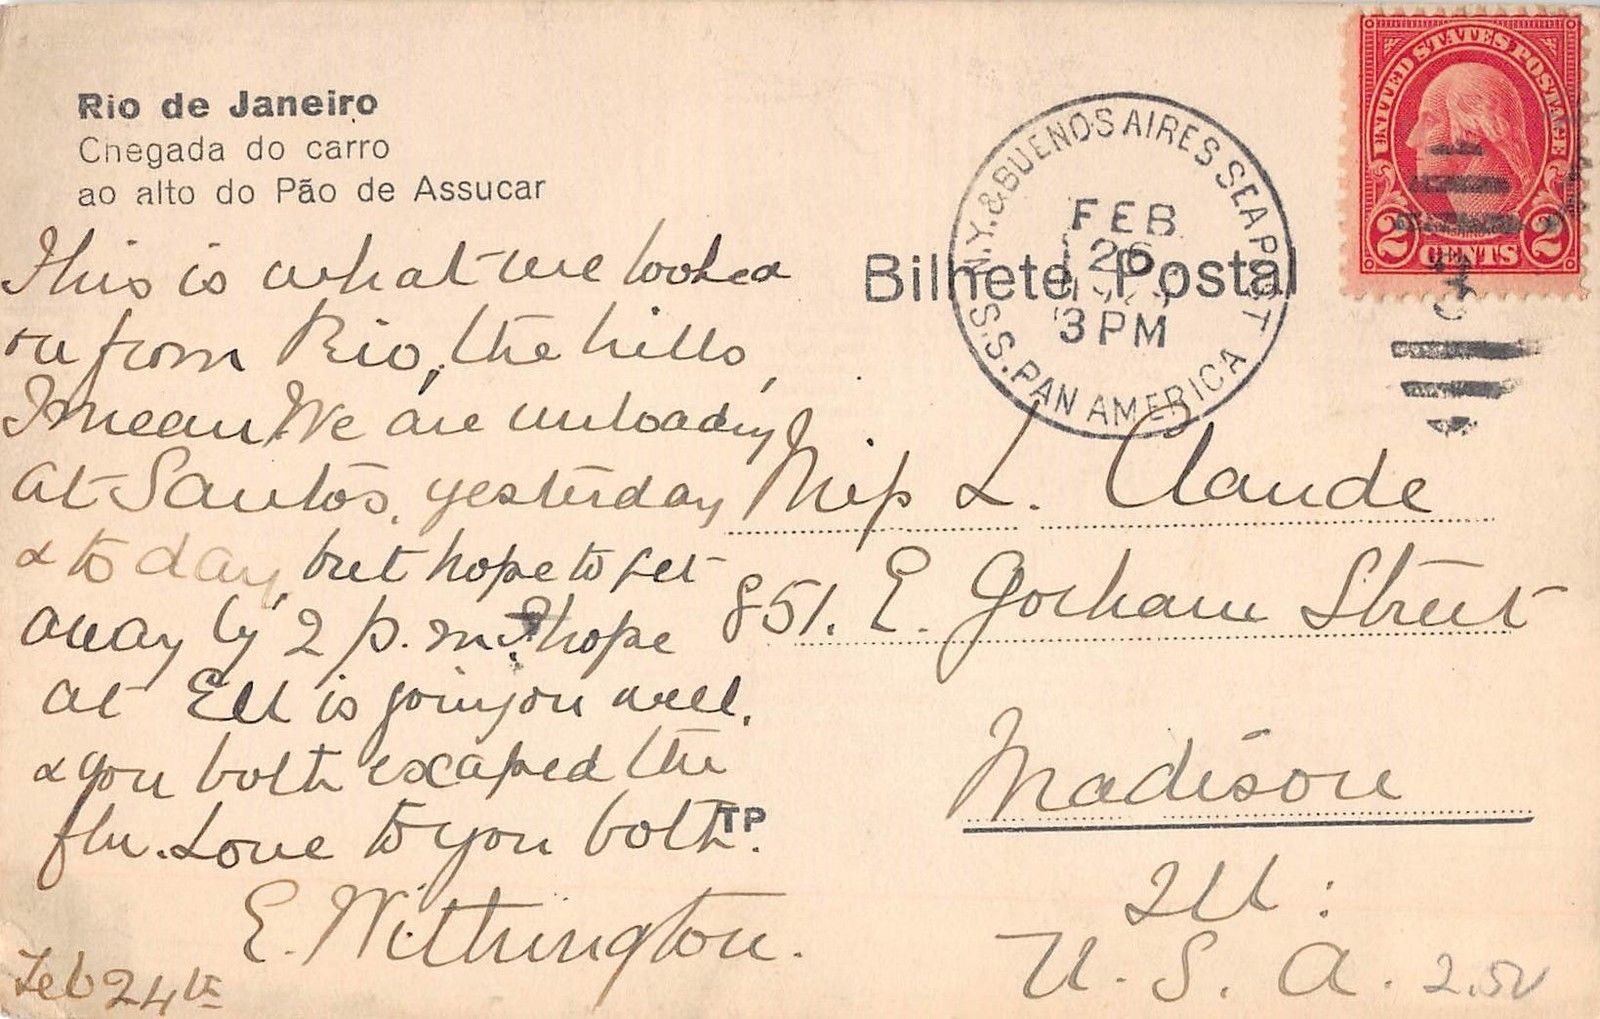 Rio de Janeiro
Chegada do carro
ao alto do Pão de Assucar
This is what we looked
on from Rio, the hills,
I mean. We are unloading
at Santos, yesterday
& to day, but hope to get
away by 2 p.m. I hope
at Ell is you well.
& you both escaped the
flu. Love to you both.
E. Withington.
Feb 24th
TP
Bilhete Postal
N.Y. & BUENOS AIRES SEAPOST
S.S. PAN AMERICA
FEB
26
3 PM
UNITED STATES POSTAGE
2 CENTS 2
Miss L. Claude
851. E. Gorham Street
Madison
Ill:
U.S.A.
2.50